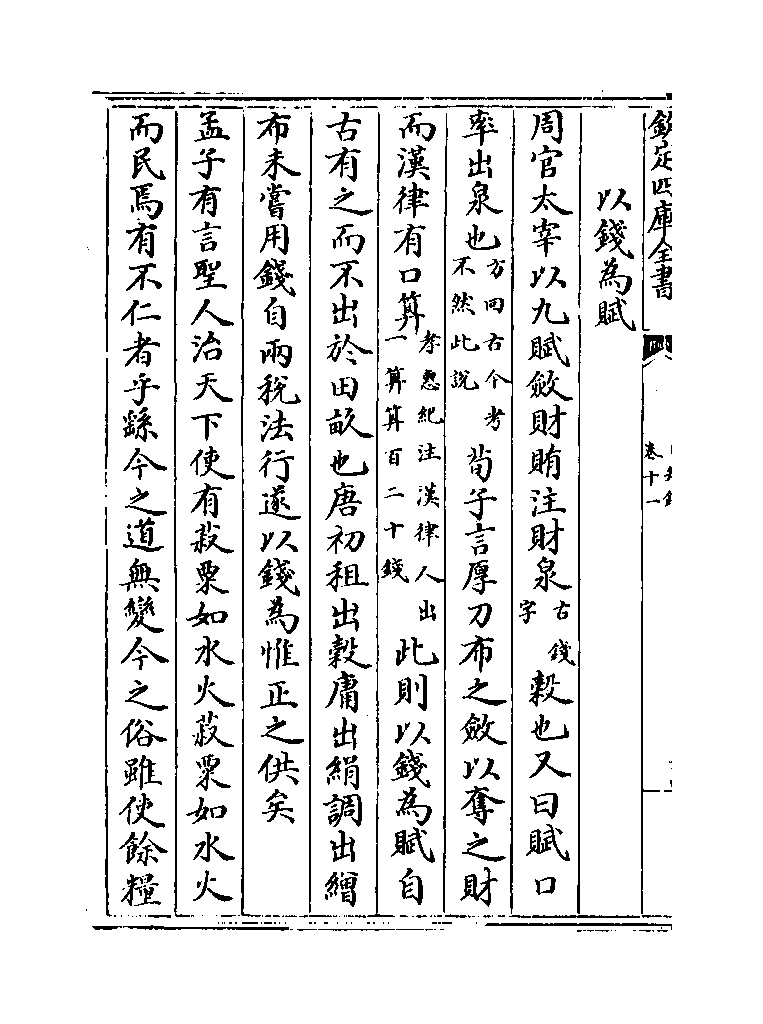 欽定四庫全書
卷十一
以錢為賦
周官太宰以九賦斂財賄注財泉古錢字榖也又曰賦口
率出泉也方回古今考不然此說荀子言厚刀布之斂以奪之財
而漢律有口算孝惠紀注漢律人出一算算百二十錢此則以錢為賦自
古有之而不出於田畝也唐初租出榖庸出絹調出繒
布未嘗用錢自兩稅法行遂以錢為惟正之供矣
孟子有言聖人治天下使有菽粟如水火菽粟如水火
而民焉有不仁者乎繇今之道無變今之俗雖使餘糧